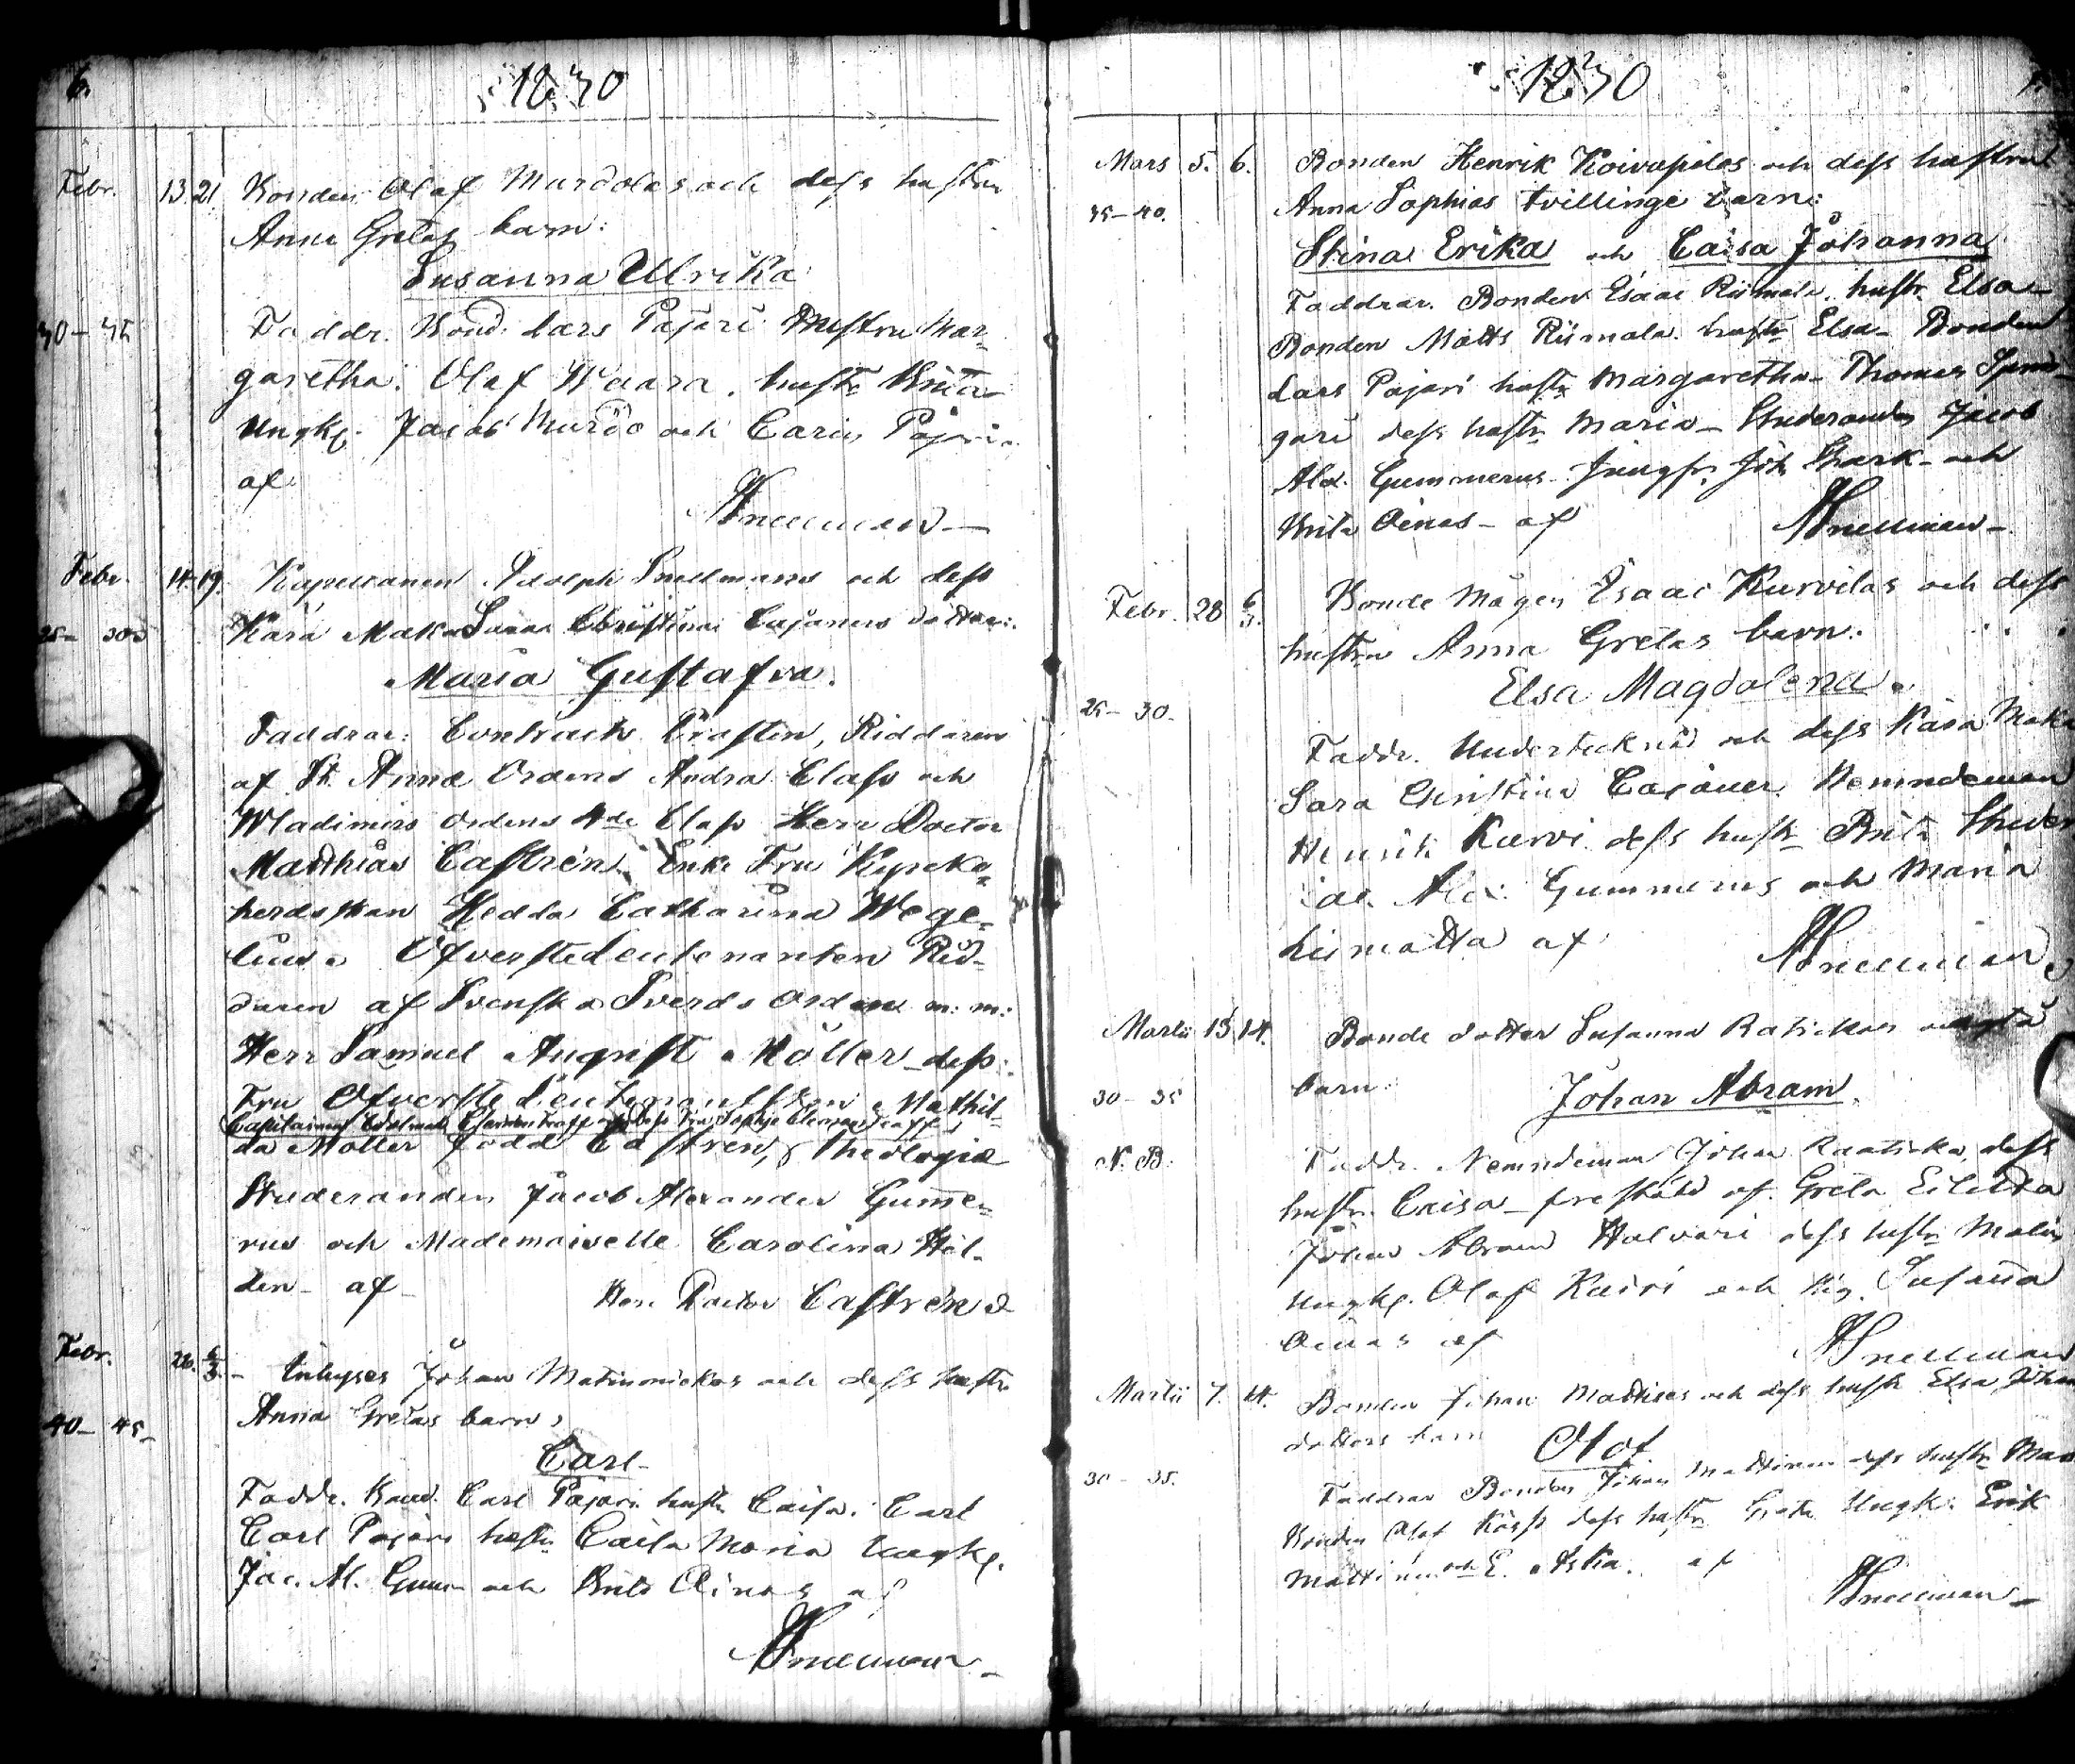 6.
1830
Febr. 13. 21. Bonden Olof Murdolas och dess hustru
Anna Gretas barn:
Susanna Ulrika
40-45 Faddr. Bond. Lars Pajari Hustru Mar-
garetha. Olof Waara, hustr Brita
Ungk. Jacob Murdo och Carin Pajari.
af
ASnellman
Febr. 14. 19. Kapellanen Adolph Snellmans och dess
25-30 Kära Maka Sara Christina Cajanus dotter:
Maria Gustafva.
Faddrar: Contracts Prosten, Riddaren
af St. Annæ Ordens Andra Class och
Wladimirs Ordens 4de Class Herr Doctor
Matthias Castrén. Enke Fru Kyrko-
herdskan Hedda Catharina Wege-
lius. ÖfversteLeutenanten Rid-
daren af Svenska Sverds Orden m: m:
Herr Samuel August Möller dess
Fru Öfverste Leutenantskan Mathil-
Capitainen Edelmak dess Fru Sophie
da Möller född Castrén, Theologiæ
Studeranden Jacob Alexander Gumme-
rus och Mademoiselle Carolina Hol-
den af Herr Doctor Castrén
Febr. 26. 6/3. Inhyses Johan Matinmickos och dess hustr
40-45 Anna Gretas barn,
Carl
Faddr. Bond. Carl Pajari hustr Caisa. Carl
Carl Pajari hustr Caisa Maria Ungk.
Jac. Al. Gum och Brita Ainas af
ASnellman
1830
Mars 5. 6. Bonden Henrik Koivupelos och dess hustrus
35-40. Anna Sophias tvillinge barn:
Stina Erika och Caisa Johanna
Faddrar. Bonden Esaac Riimala. hustr. Elsa
Bonden Matts Riimala. hustr Elsa Bonden
Lars Pajari hustr Margaretha Thomas
gari dess hustr Maria Studeranden Jacob
Alex. Gummerus Jungfr. Joh. Stark och
Brita Oinas af ASnellman
Febr. 28 6/3. Bonde Mågen Esaac Kurvilas och dess
hustru Anna Gretas barn.
Elsa Magdalena
25-30. Faddr. Undertecknad och dess Kära Maka
Sara Christina Cajaner. Nemndeman
Henrik Kurvi dess hustr Brita Stude
Alex: Gummerus och Maria
Liimatta af ASnellman
Martii 13 14. Bonde dotter Susanna Ratickas oägta
30-35 barn: Johan Abram.
N. B. Faddr. Nemndeman Johan Raaticka, dess
hustr. Caisa af Greta
Johan Abram Halvari dess hustr Malin
Ungk. Olof Kairi och Pig. Susanna
Oinas af ASnellman
Martii 7. 14. Bonden Johan Mattises och dess hustr Elsa Johans
dotters barn Olof
30-35. Faddrar Bonden Johan Mattinen dess hustr Mar
Bonden Olof dess hustr Greta Ungk. Erik
Mattinen och E. af
ASnellman